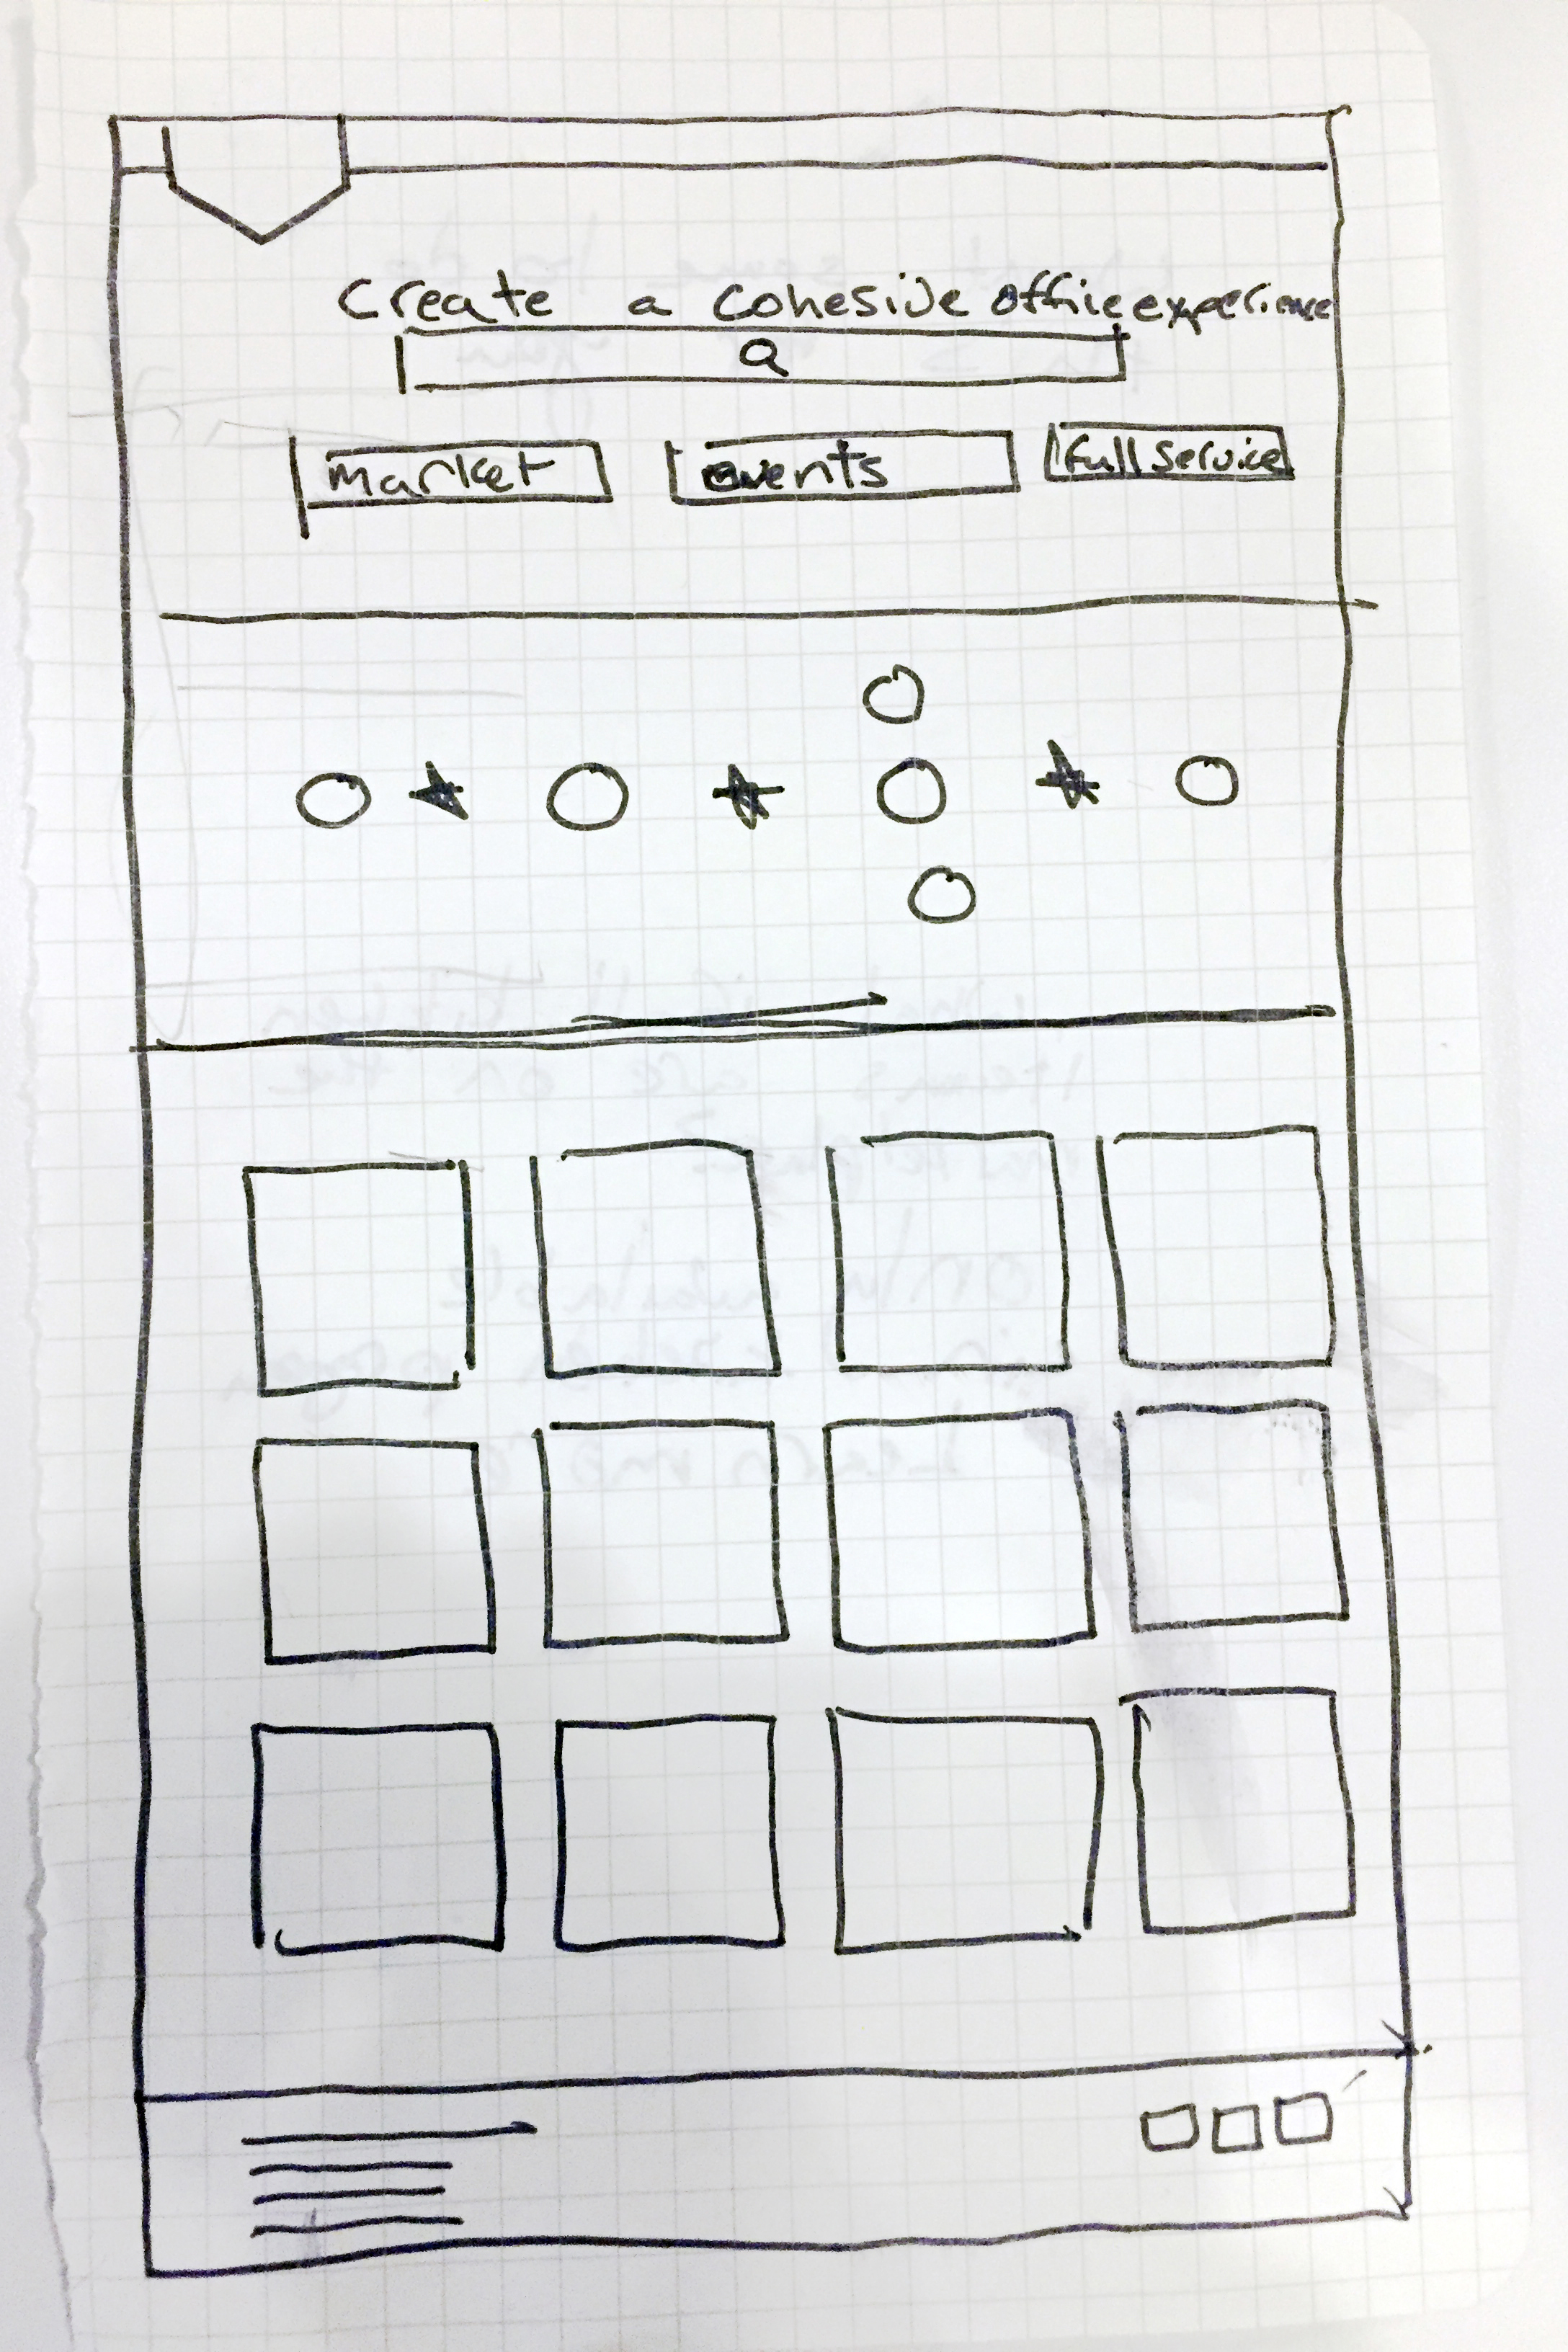 Create a Cohesive office experience
Q
market events full service